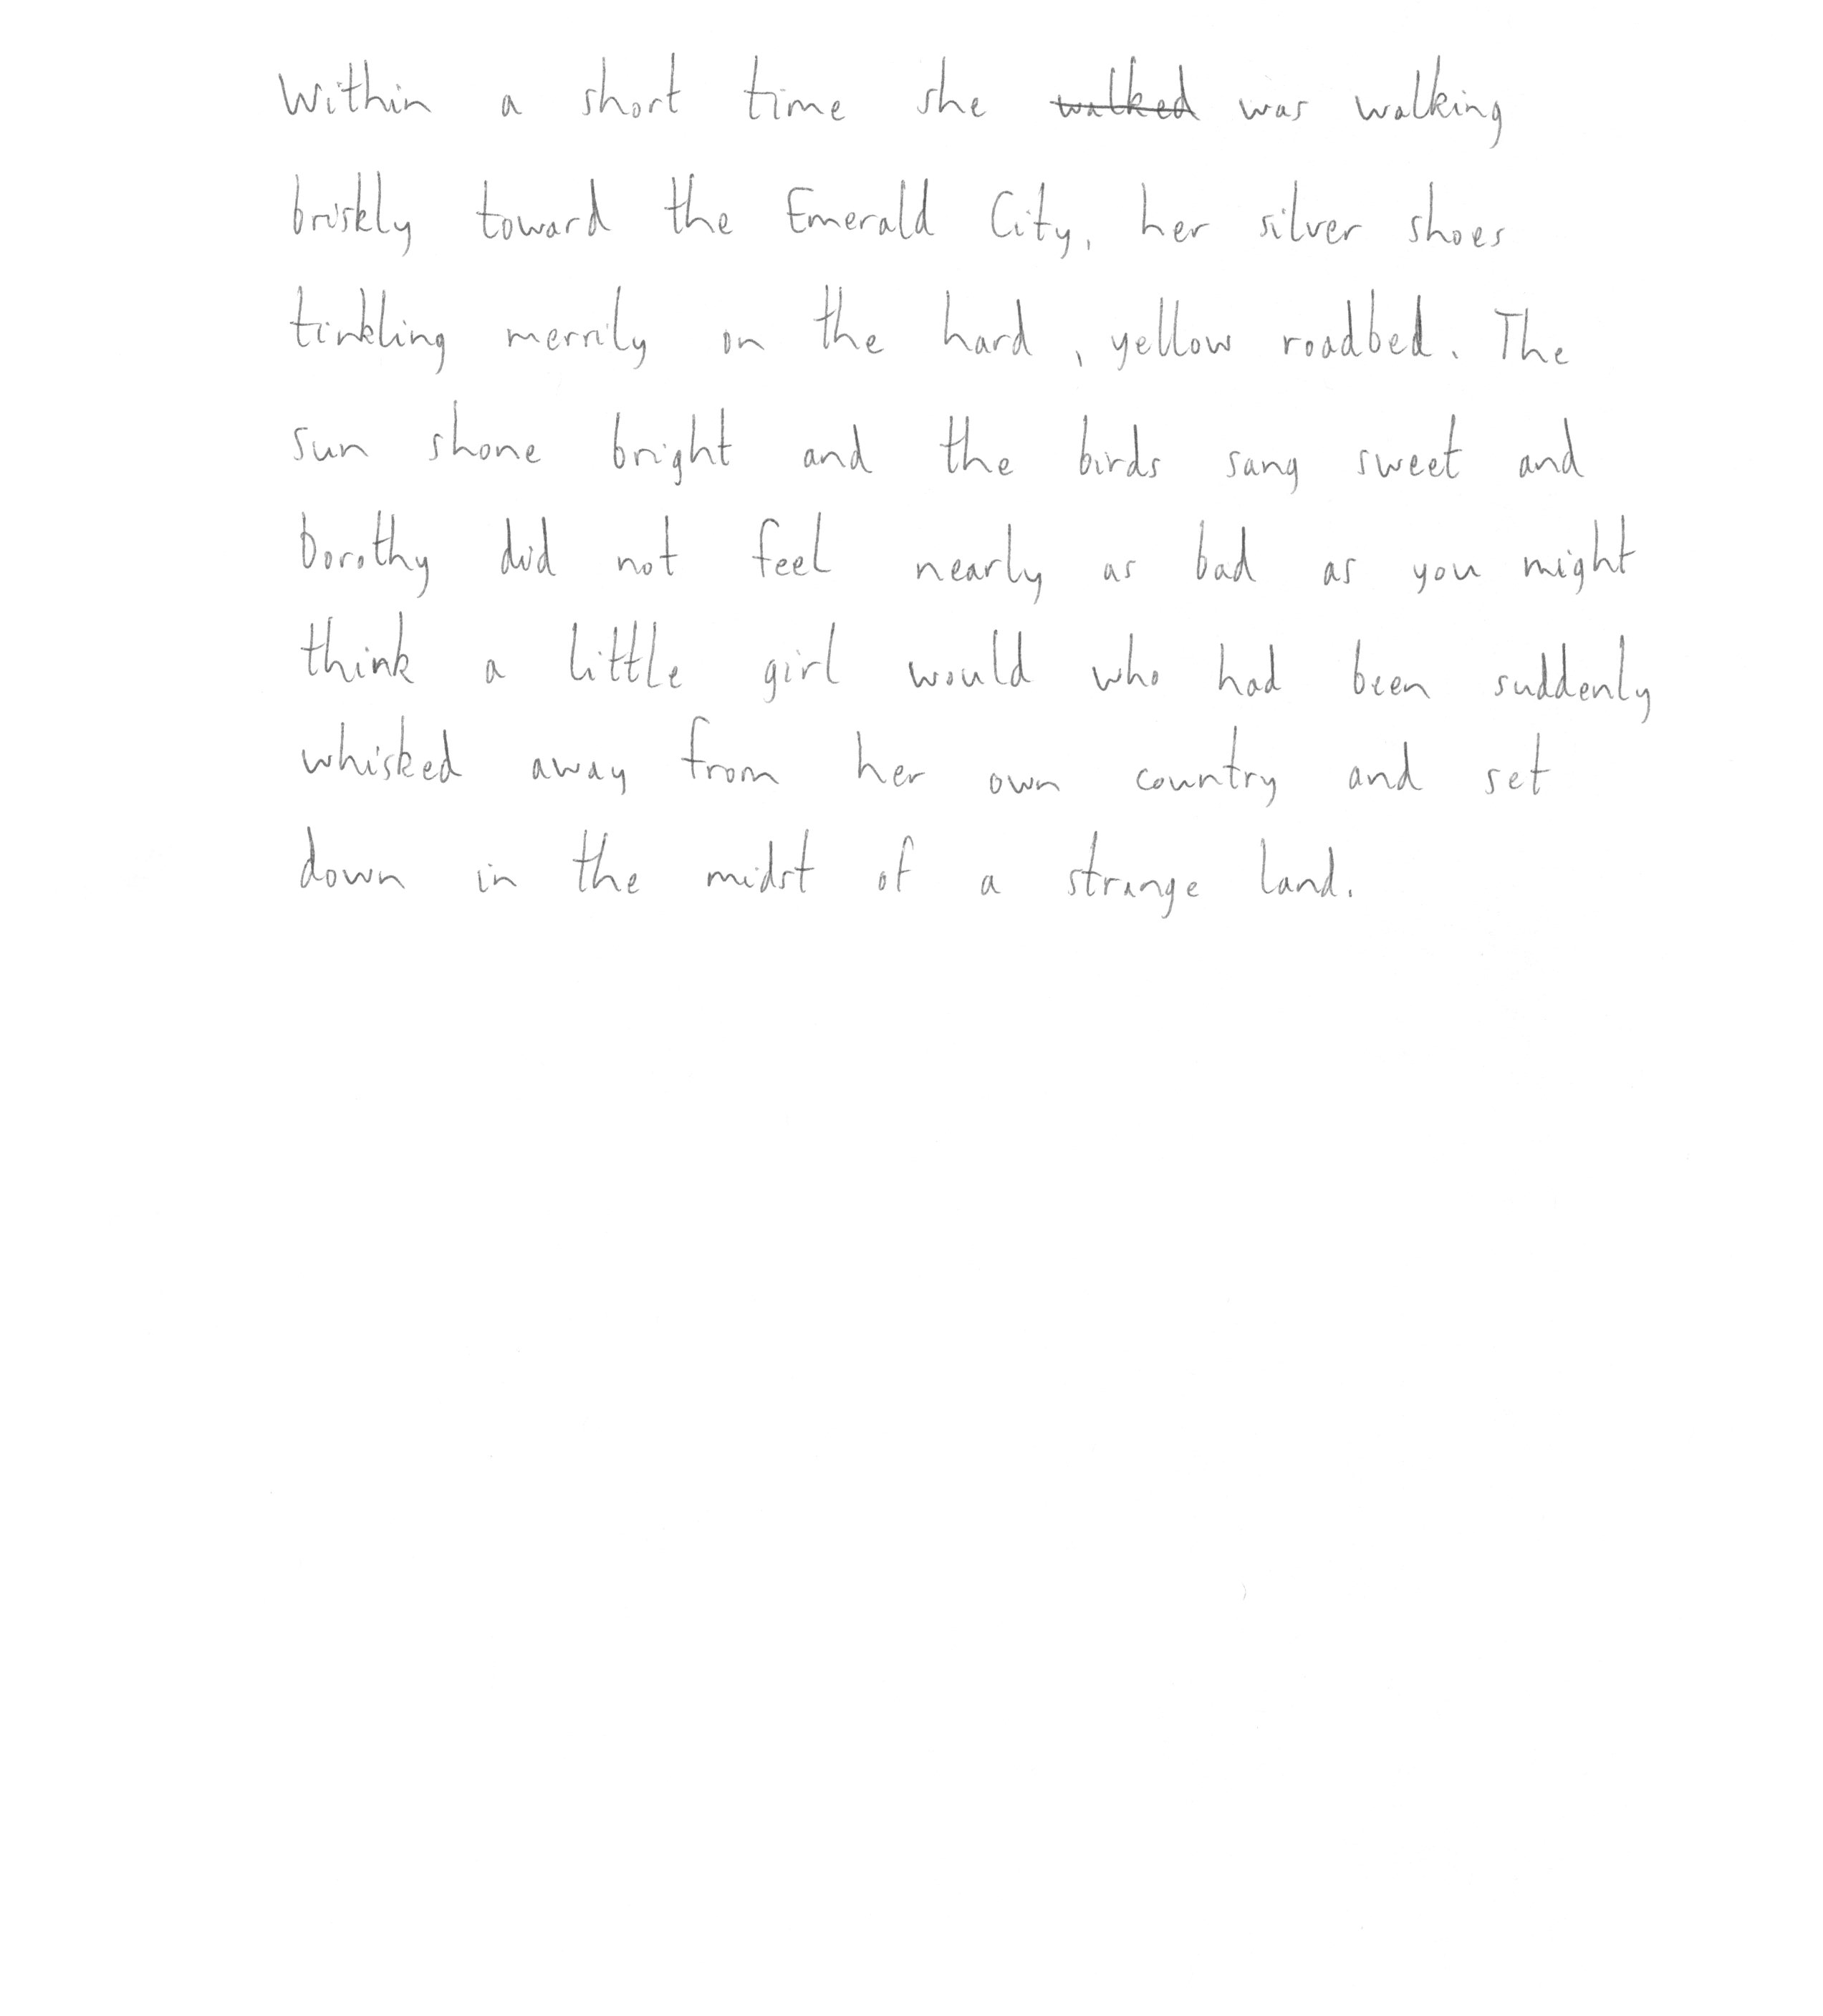 Within a short time she walked was walking
briskly toward the Emerald City, her silver shoes
tinkling merrily on the hard, yellow roadbed. The
sun shone bright and the birds sang sweet and
Dorothy did not feel nearly as bad as you might
think a little girl would who had been suddenly
whisked away from her own country and set
down in the midst of a strange land.